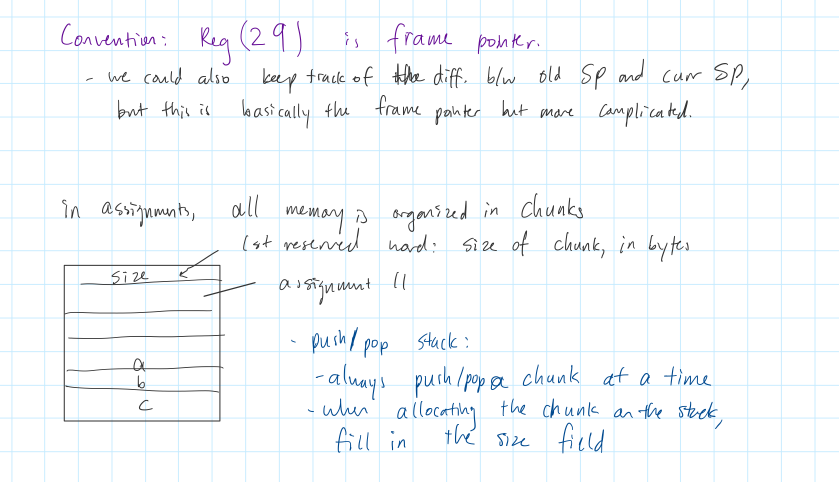 Convention: Reg(29) is frame pointer.
- we could also keep track of the diff. b/w old SP and curr SP,
but this is basically the frame pointer but more complicated.
in assignments, all memory is organized in chunks
1st reserved word: size of chunk, in bytes
size
assignment 11
- push/pop stack:
- always push/pop a chunk at a time
- when allocating the chunk on the stack,
fill in the size field
a
b
c